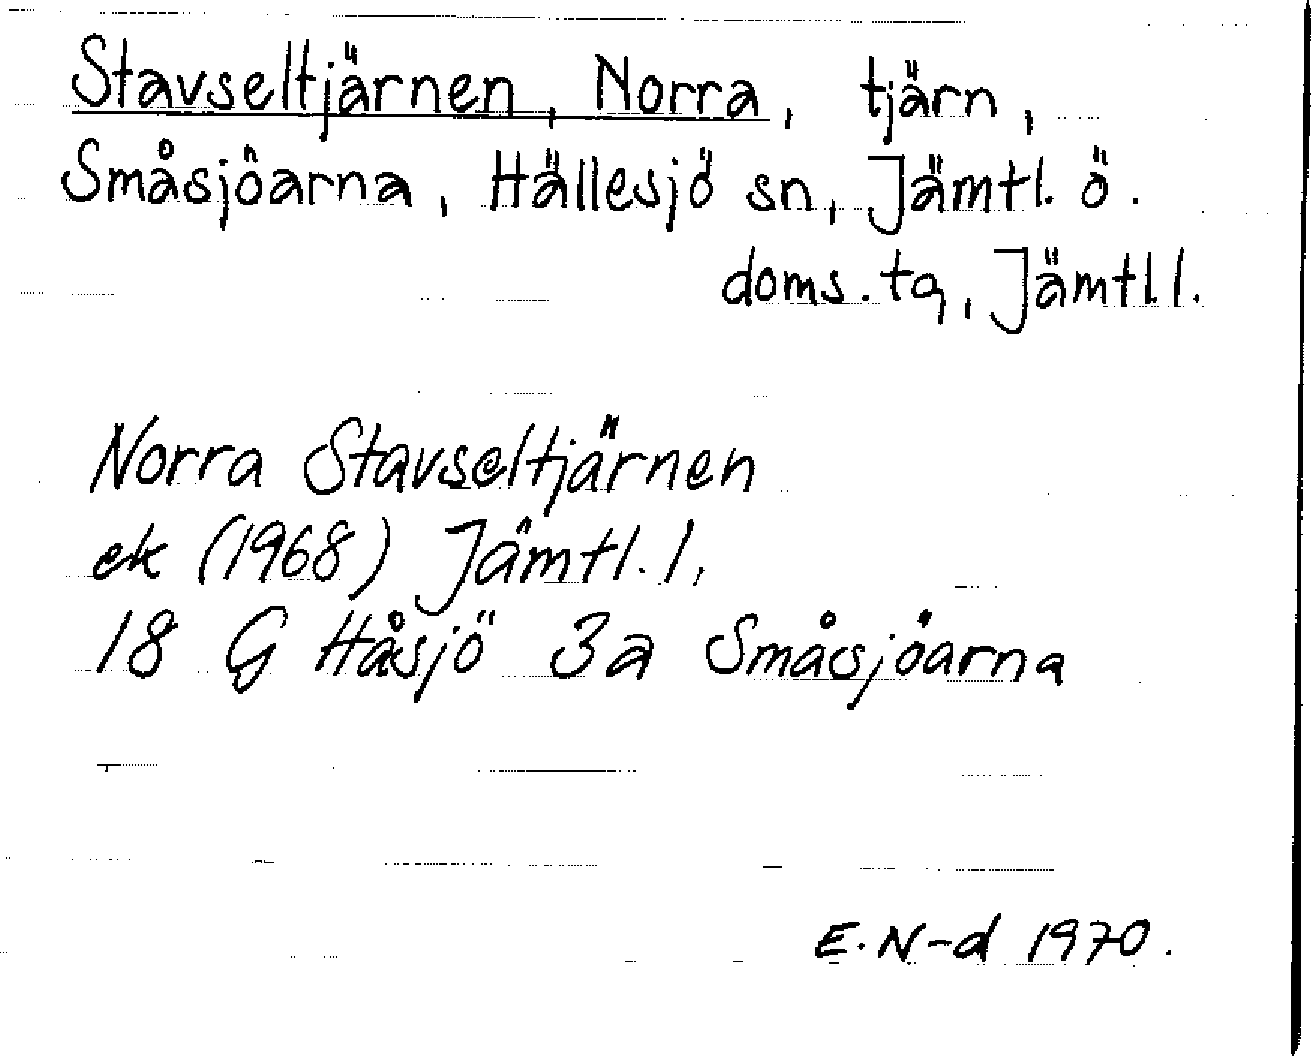 Stavseltjärnen, Norra, tjärn,
Småsjöarna, Hällesjö sn, Jämtl. ö.
doms.tg, Jämtl.l.
Norra Stavseltjärnen
ek (1968) Jämtl. l,
18 G Håsjö 3a Småsjöarna
E. N-d 1970.